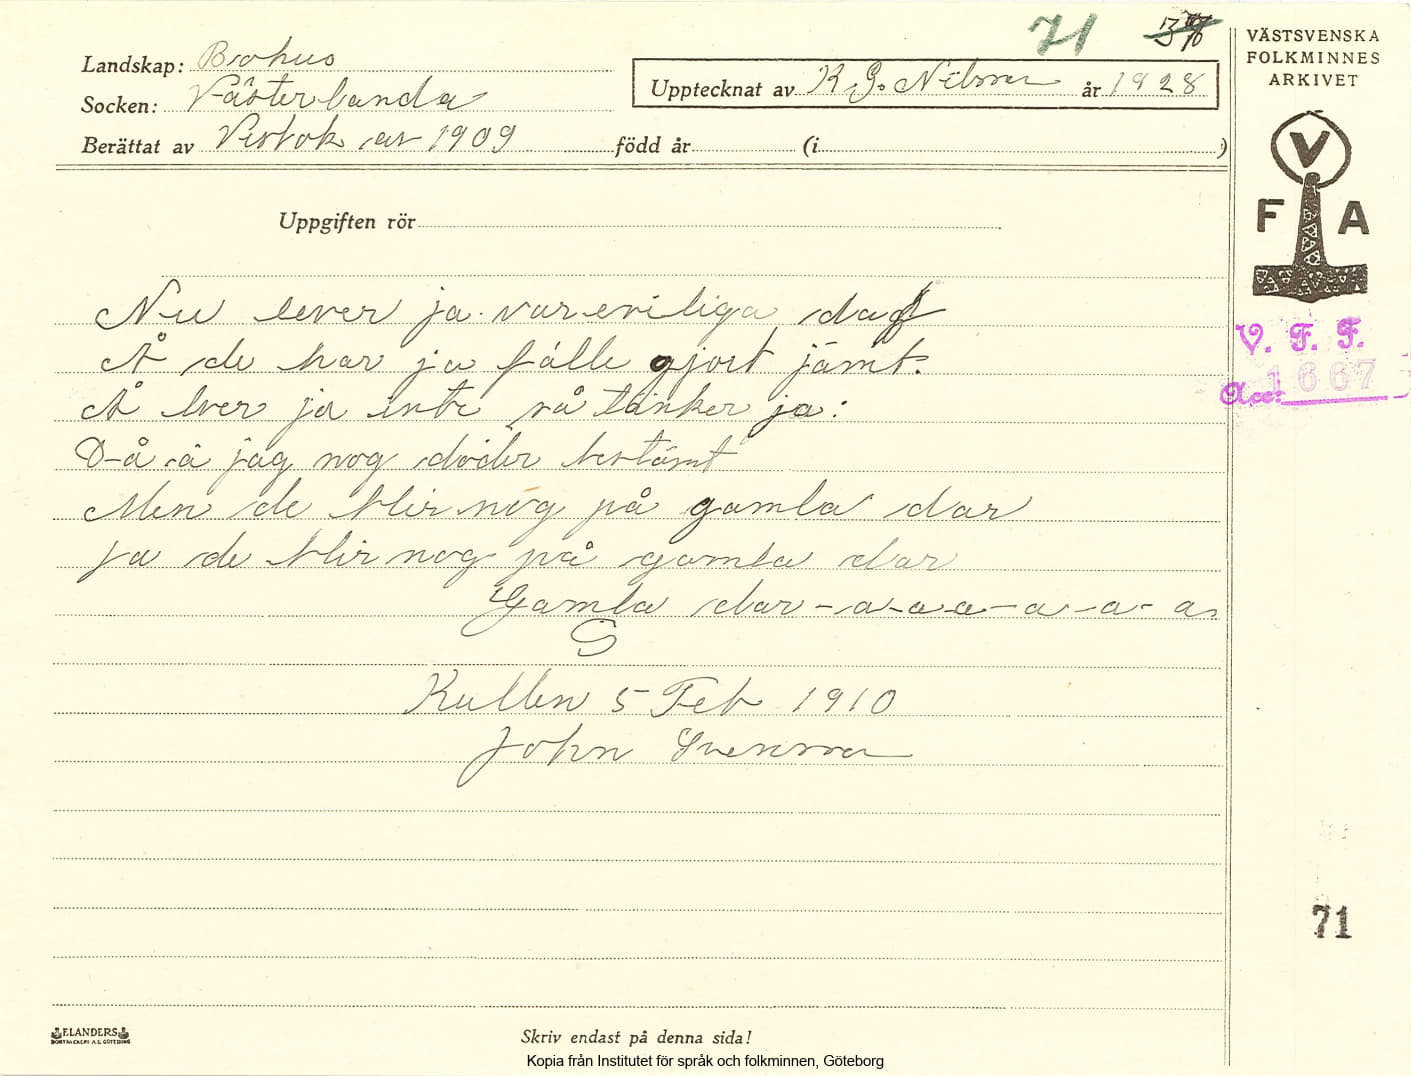 71
VÄSTSVENSKA
FOLKMINNES
ARKIVET
Landskap: Bohus
Socken: Västerlanda
Upptecknat av K. G. Nilsson år 1928
Berättat av Visbok av 1909 född år (i )
V
F A
Uppgiften rör
Nu lever ja vareviliga dag
Å de har ja fälle gjort jämt.
V. F. F.
Acc: 1667
Å lver ja inte så tänker ja:
D-å -å jag nog döder bestämt
Men de blir nog på gamla dar
ja de blir nog på gamla dar
Gamla dar-a-a-a-a-a-a
S
Kullen 5 Feb 1910
John Svensson
71
ELANDERS
Skriv endast på denna sida!
Kopia från Institutet för språk och folkminnen, Göteborg